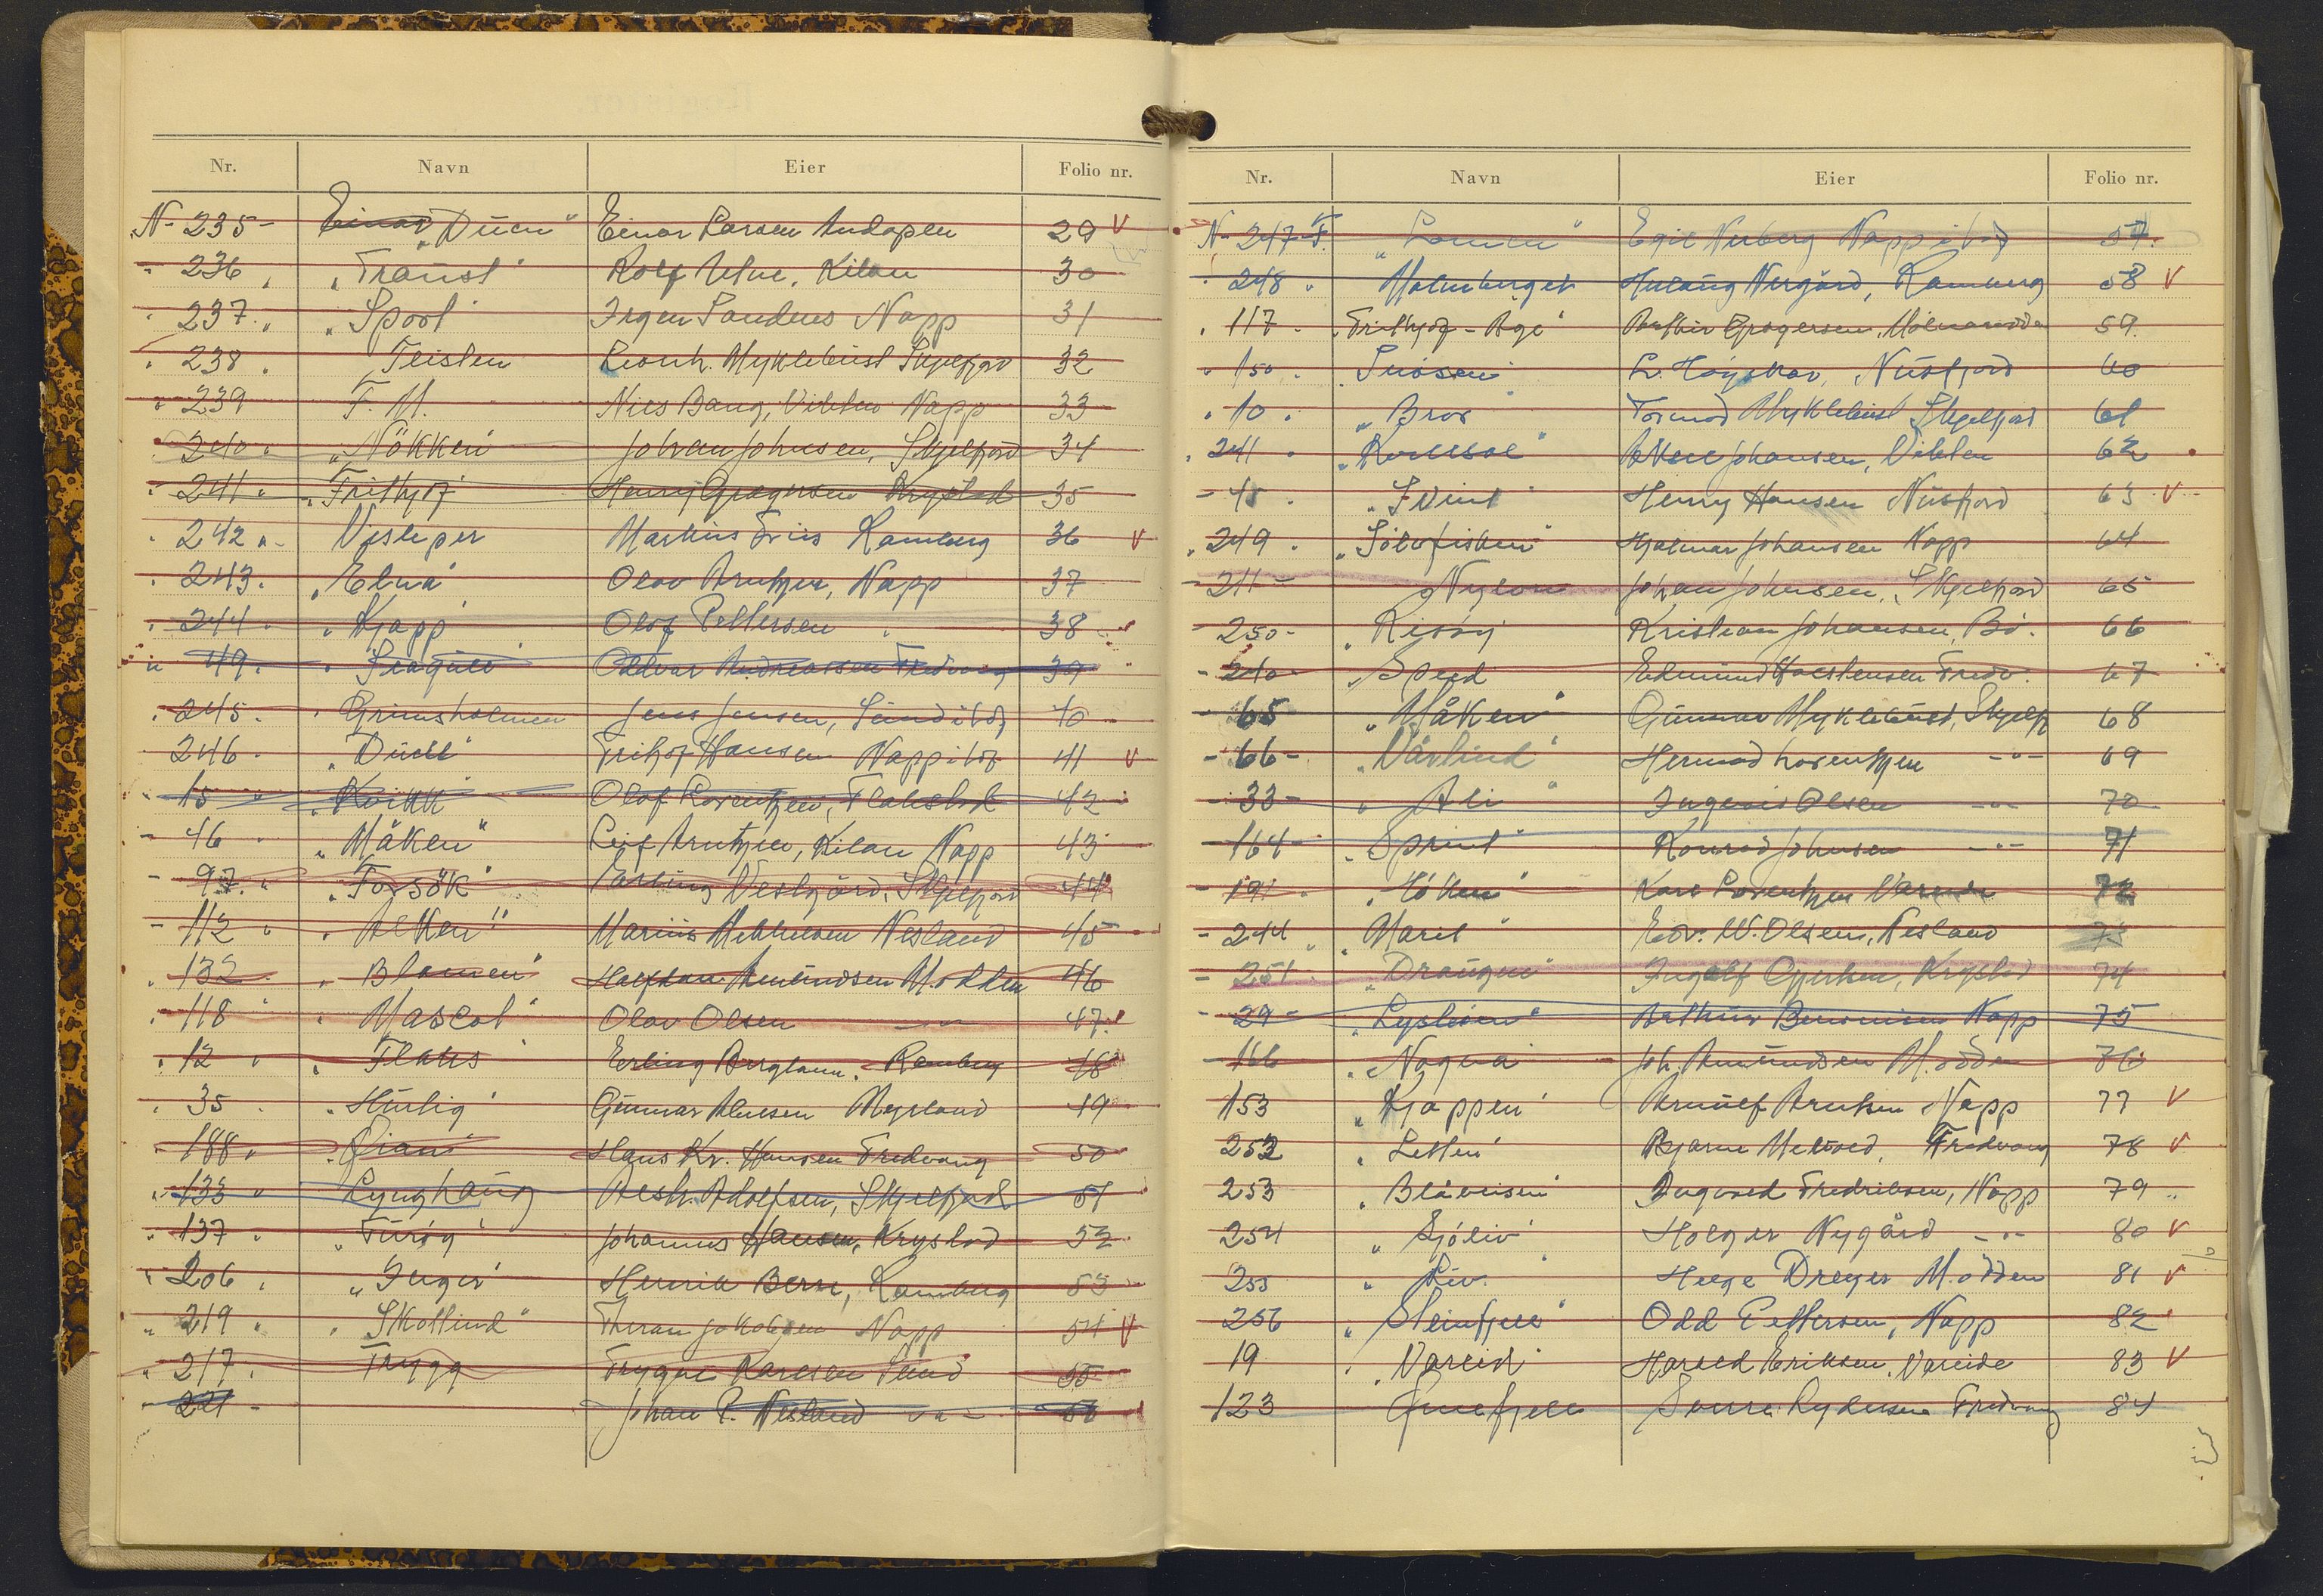 Nr. Navn Eier Folio nr.
N- 235- Einar „Duen" Einar Larsen Andopen 29 V
- 236 „ „Traust" Rolf Uhre, Kilan 30
" 237 „ „Sport" Sandnes Napp 31
" 238 „ Teisten Leonh. Myklebust Skjelfjor 32
" 239 F. M. Nils Bang, Vikten Napp 33
" 240 „ „Nökken" Johan Johnsen, Skjelfjord 34
" 241 „ „Frithjof" Henry Gregersen Krystad 35
" 242 „- Vesleper Markus Friis Ramberg 36 V
" 243 . „Elna" Olav Arntzen, Napp 37
" 244 " „Kjapp" Olof Pettersen " 38
" 49 . „Seagull" Oddvar Andreassen Fredvang 39
" 245 . " Grimsholmen Jens Jensen, Sund i Lof 40
246 - „Duell" Hansen Napp i Lof 41 V
" 15 " „Kvikk" Olof Lorentzen, Flakstad 42
- 46 „Måken" Leif Arntzen, Kilan Napp 43
- 97. " „Forsök" Erling Vestgård, Skjelfjord 44
- 112 " „Alken" Marius Mikkelsen Nesland 45
" 132 „Blomen" Halfdan Amundsen M.odden 46
" 118 " „Mascot" Olav Olsen -"- 47
" 12 " „Flaks" Erling Berglann. Ramberg 48
" 35 . „Hurtig" Gunnar Myrland 49
" 188 " Hans Kr. Hansen Fredvang 50
" 133 " Lynghaug Adolfsen, Skjelfjord 51
" 137 " „Turöy" Johannes Hansen, Krystad 52
" 206 . „Inger" Henrik Berre, Ramberg 53
" 219 . „Skottind" Jakobsen Napp 54 V
" 217 . Trygg Trygve Karlsen Sund 55
- 221 - Johan P. Nesland -"- 56
Nr. Navn Eier Folio nr.
N- 247-F. Egil Nerberg Napp i Lof 57.
" 248 " Malmberget Nergård, Ramberg 58 V
" 117 - „Frithjof-Åge" Gregersen, Mölnarodden 59.
" 150 . L. Höyskar, Nusfjord 60
" 10 . „Bror" Tormod Myklebust Skjelfjord 61
" 241 " Johansen, Vikten 62 .
- 45 . „Svint" Henry Hansen Nusfjord 63 V
" 249 . „Sölvfisken" Hjalmar Johansen Napp 64
- 211 - Nylon Johan Johnsen, Skjelfjord 65
- 250 - Kristian Johansen, Bö. 66
- 240 - „Speed Edmund Fredv. 67
- 65 „Måken" Gunnar Myklebust, Skjelfj 68
- 66 - „Vårlind" Hermod Lorentzen -"- 69
- 33 - „Ali" Ingvar Olsen -"- 70
- 164 - „Sprint" Konrad Johnsen -"- 71
- 191 . Kåre Lorentzen Vareide 72
- 244 " „Marit" Edv. W. Olsen, Nesland 73
- 251 . „Draugen" Ingolf Gjertsen, Krystad 74
- 29 - Arthur Napp 75
- 166 . „Nagna" Joh. Amundsen M.odden 76
153 „Kjappen" Arnulf Arntsen Napp 77 V
252 „Letten" Bjarne Meløed, Fredvang 78 V
253 „Blåveisen" Ingvald Fredriksen, Napp 79
254 „Sjöliv" Holger Nygård -"- 80 V
255 „Liv." Helge Dreyer M.odden 81 V
256 „Steinfjell" Odd Pettersen, Napp 82
19 „Vareid" Harald Eriksen, Vareide 83 V
123 Fredvang 84